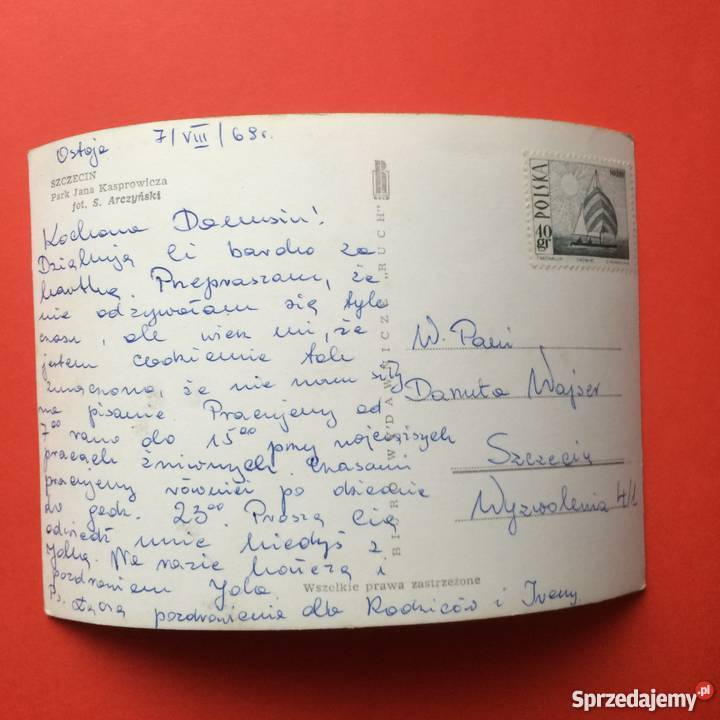 Ostoja 7/VIII/69r.
SZCZECIN
Park Jana Kasprowicza
fot. S. Arczyński
Kochana Danusiu!
Dziękuję Ci bardzo za
kartkę. Przepraszam, że
nie odzywałam się tyle
czasu, ale wiesz mi, że
jestem codziennie tak
zmęczona, że nie mam siły
na pisanie. Pracujemy od
7⁰⁰ rano do 15⁰⁰ przy najcięższych
pracach żniwnych. Czasami
pracujemy również po obiedzie
do godz. 23⁰⁰. Proszę Cię
odwiedź mnie kiedyś z
Jolką. Na razie kończę i
pozdrawiam Jola.
Ps. Łączę pozdrowienia dla Rodziców i Iwony.
BIURO WYDAWNICZE „RUCH”
Wszelkie prawa zastrzeżone
POLSKA
40 gr
W. Pani
Danuta Wajser
Szczecin
Wyzwolenia 4/1
Sprzedajemy.pl